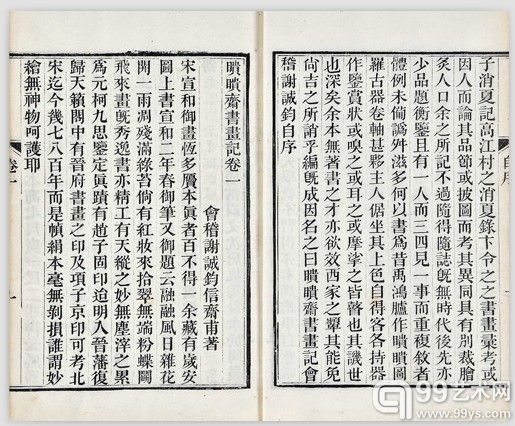 子消夏記高江村之消夏錄卞令之之書畫彙考或
因人而論其品節或披圖而考其異同具有別裁膾
炙人口余所記不過隨得隨誌旣無時代後先亦
少品題衡鑒且有一人而三四見一事而重複敘者
體例未備譌舛滋多何以書爲昔禹鴻臚作瞶瞶圖
羅古器卷軸甚夥主人倨坐其上色自得客各持器
作鑒賞狀或嗅之或耳之或摩挲之皆瞽也其譏世
也深矣余本無著書之才亦欲效西家之顰其能免
尙吉之所誚乎編旣成因名之曰瞶瞶齋書畫記會
稽謝誠鈞自序
自序
瞶瞶齋書畫記卷一
會稽謝誠鈞信齋甫著
宋宣和御畫恆多贗本眞者百不得一余藏有歲安
圖上書宣和二年春御筆又御題云融融風日雜花
開一雨凋殘滿綠苔倘有紅妝來拾翠無端粉蝶鬭
飛來畫旣秀逸書亦精工有天縱之妙無塵滓之累
爲元柯九思鑒定眞蹟有趙子固印迨明入晉藩復
歸天籟閣中有晉府書畫之印及項子京印可考北
宋迄今幾七八百年而是幀絹本毫無剝損誰謂妙
繪無神物呵護耶
卷一
一
99艺术网
www.99ys.com